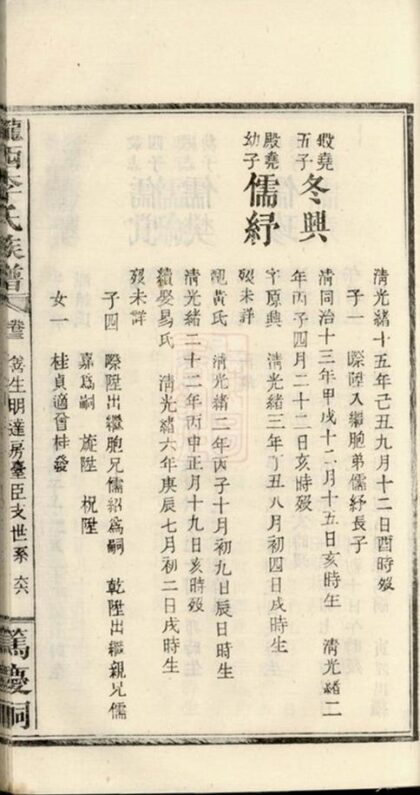 清光緒十五年己丑九月十二日酉時歿
子一 際陞入繼胞弟儒紓長子
殿堯五子 冬興 清同治十三年甲戌十二月十五日亥時生 清光緒二
年丙子四月二十二日亥時歿
殿堯幼子 儒紓 字原興 清光緒三年丁丑八月初四日戌時生
歿未詳
配黃氏 清光緒二年丙子十月初九日辰時生
清光緒二十二年丙申正月十九日亥時歿
續娶易氏 清光緒六年庚辰七月初二日戌時生
歿未詳
子四 際陞出繼胞兄儒紹爲嗣 乾陞出繼親兄儒
嘉爲嗣 旋陞 祝陞
女一 桂貞適曾桂發
隴西李氏族譜 卷 善生明達房臺臣支世系 篤慶祠